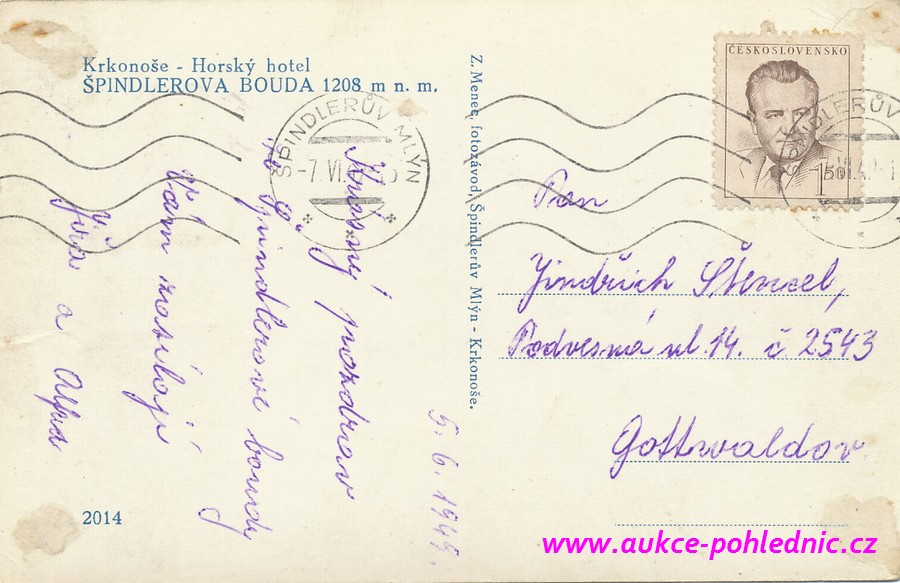 Krkonoše - Horský hotel
ŠPINDLEROVA BOUDA 1208 m n. m.
Krásný pozdrav
ze Špindlerové boudy
Vám zasílají
Jiřa a Alfred
5. 6. 1949.
2014
Z. Menec, fotozávod, Špindlerův Mlýn - Krkonoše.
ČESKOSLOVENSKO
1.50
ŠPINDLERŮV MLÝN
-7.VI.
ŠPINDLERŮV
Pan
Jindřich Štencel,
Podvesná ul. 14. č. 2543
Gottwaldov.
www.aukce-pohlednic.cz